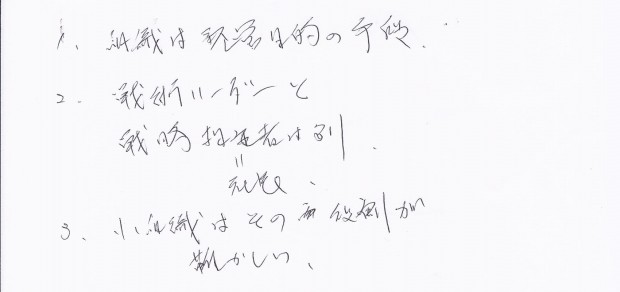 1. 組織は経営目的の手段.
2. 戦術リーダーと
戦略担当者は別.
=
3. 小組織はその両役割が
難かしい、